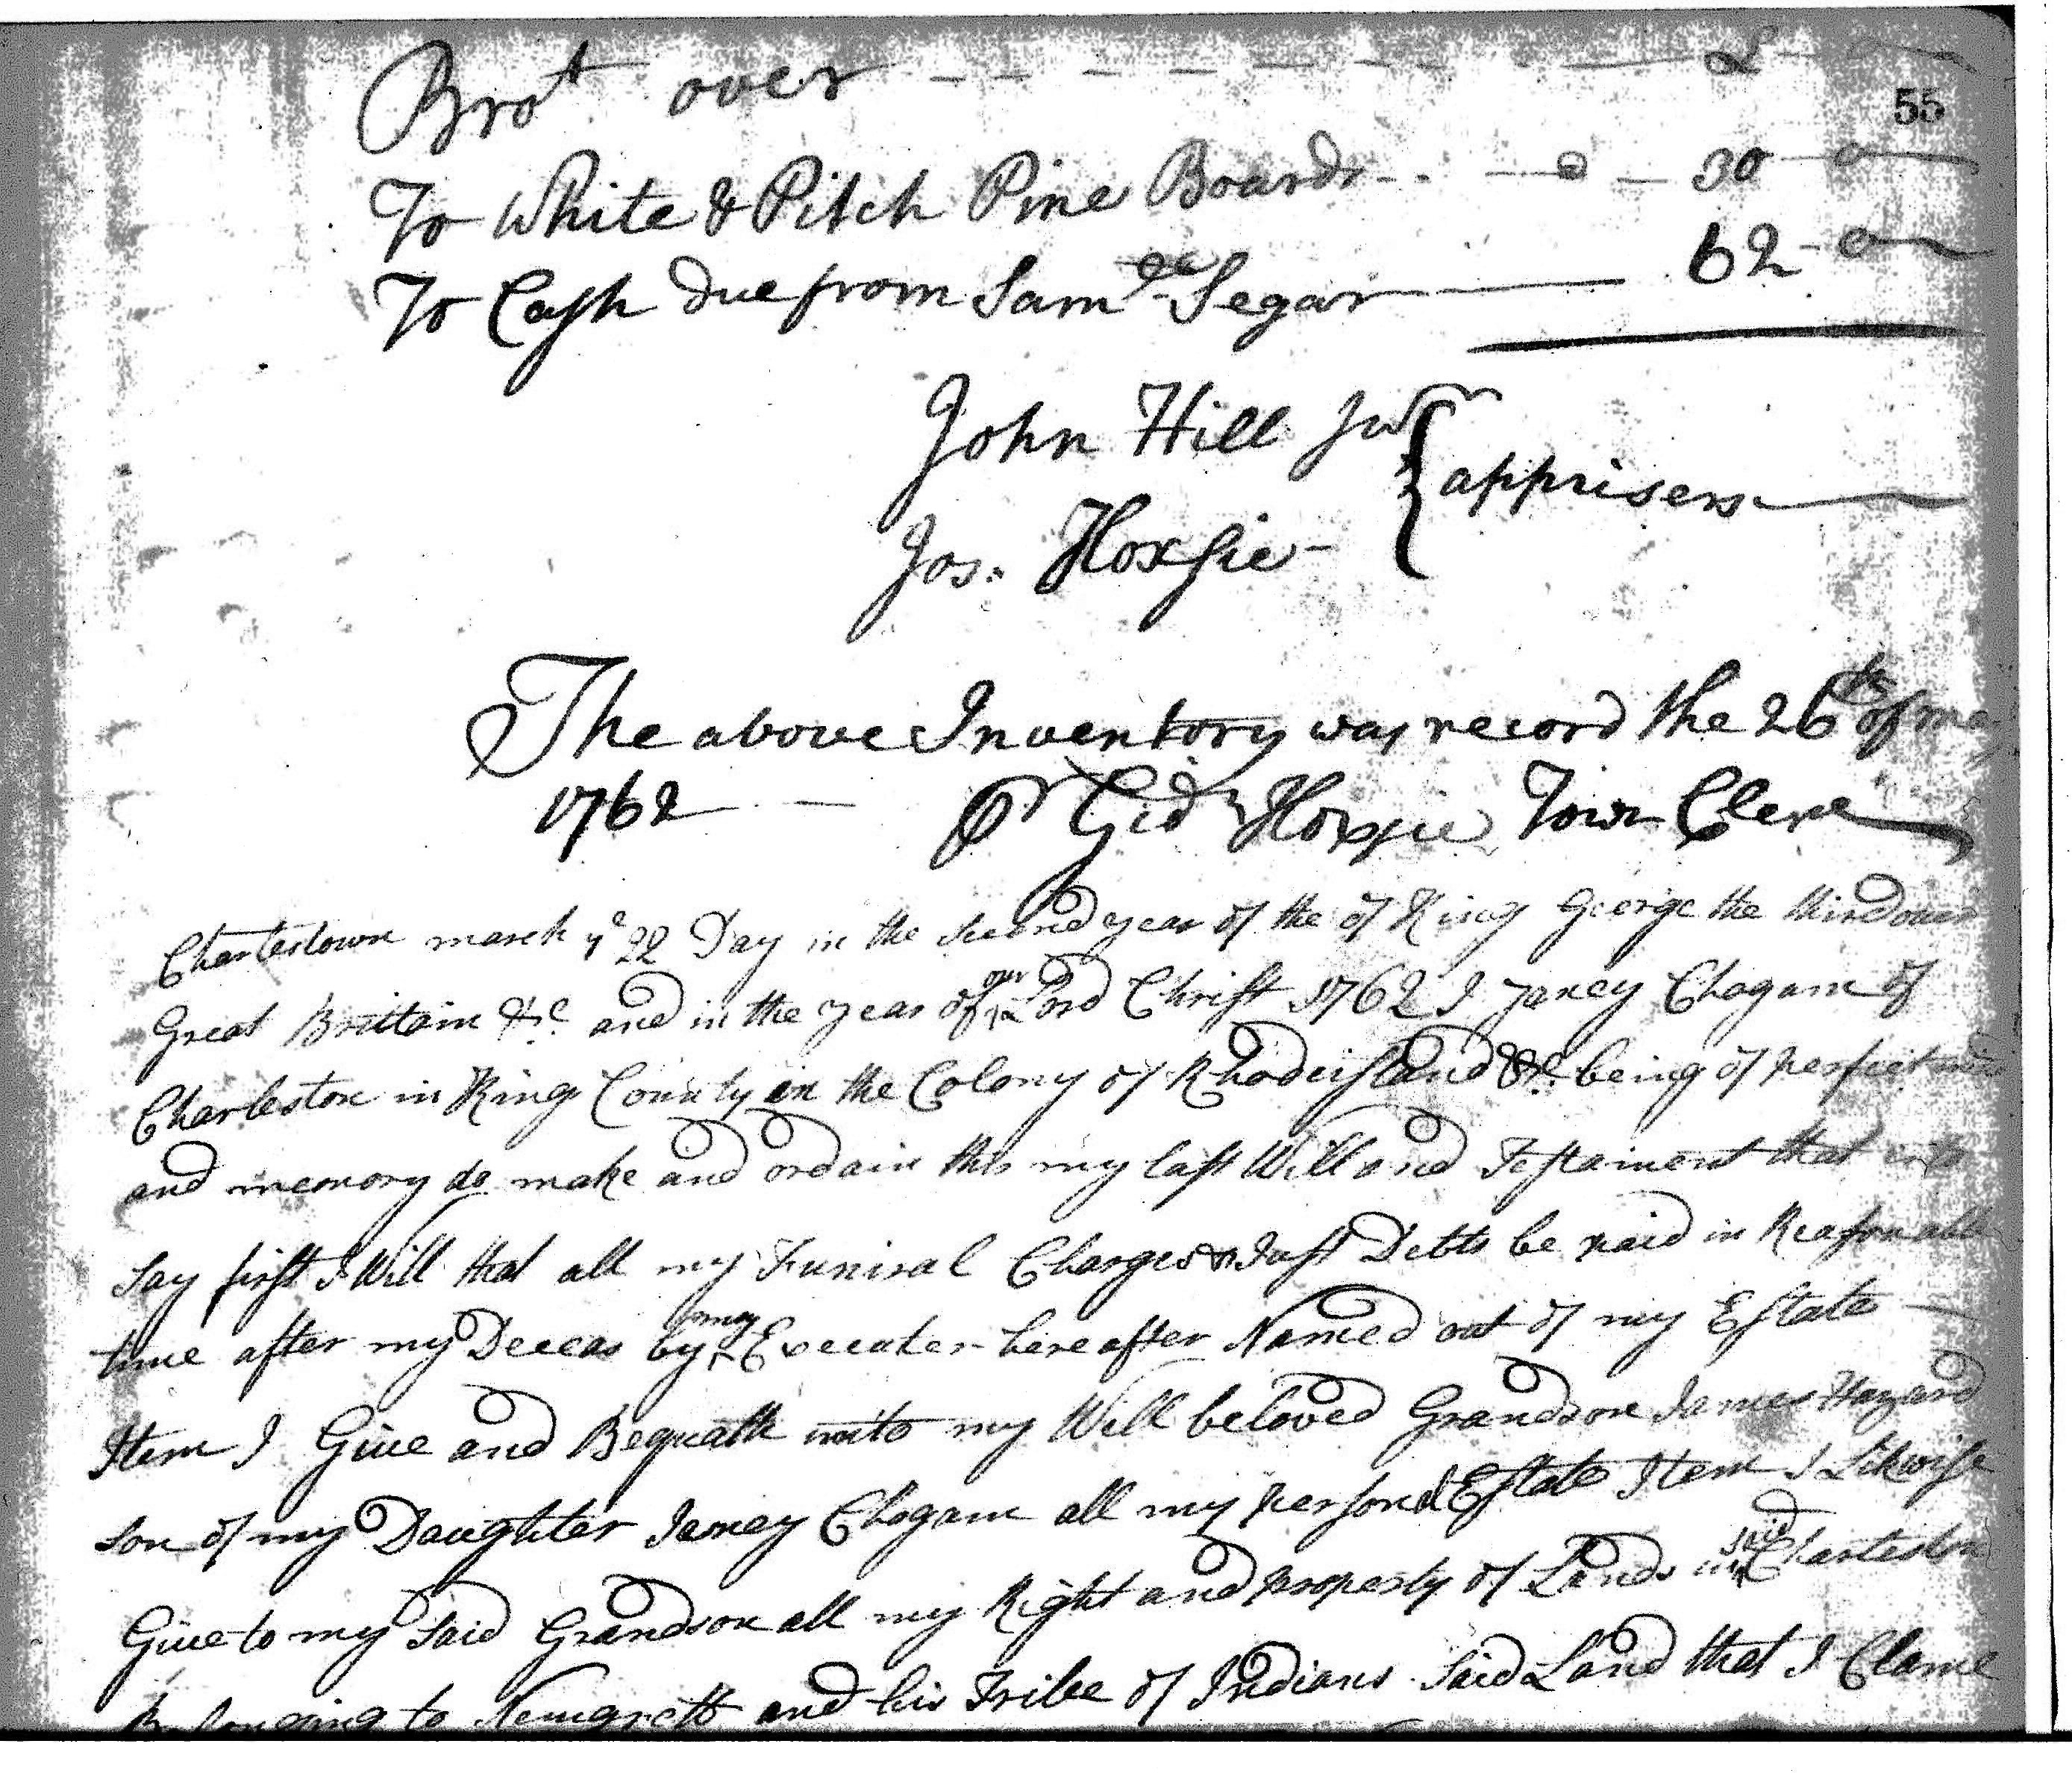 Brot over - - - - - - - £
55
To White & Pitch Pine Boards - - - 30 - 0
To Cash Due from Saml Segar 62 - 0
John Hill Jur
apprisers
Jos. Hoxsie
The above Inventory was record the 26th of
1762 - Pr Gid Hoxsie Town Clerk
Charlestown march ye 22 Day in the second year of the of King George the third over
Great Brittain &c and in the year of our Lord Christ 1762 I Janey Chogam of
Charleston in King County in the Colony of Rhodeisland &c being of perfect
and memory do make and ordain this my last Will and Testament that
Say first I Will that all my Funiral Charges & Just Debts be paid in Reasonable
time after my Deceas by my Executer hereafter Named out of my Estate
Item I Give and Bequath unto my Well beloved Grandson James Hazard
Son of my Daughter Janey Chogam all my personal Estate Item I Likwise
Give to my Said Grandson all my Right and property of Lands in said Charleston
Belonging to and his Tribe of Indians Said Land that I Clame